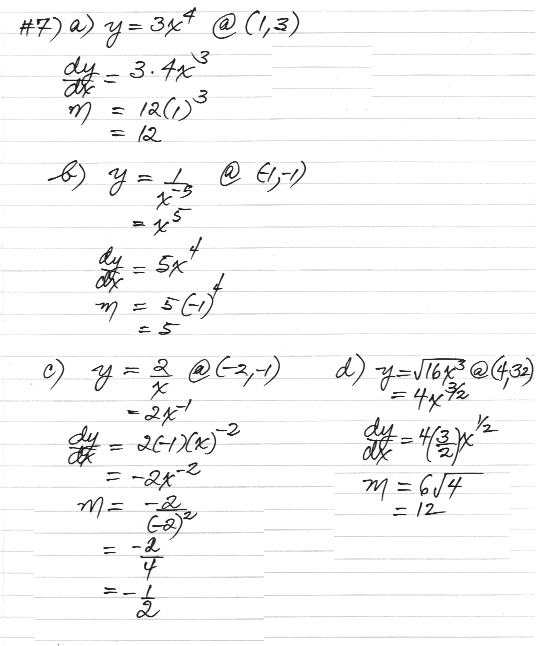 #7) a) y = 3x⁴ @ (1,3)
dy/dx = 3·4x³
m = 12(1)³
= 12
b) y = 1/x⁻⁵ @ (-1,-1)
= x⁵
dy/dx = 5x⁴
m = 5(-1)⁴
= 5
c) y = 2/x @ (-2,-1)
= 2x⁻¹
dy/dx = 2(-1)(x)⁻²
= -2x⁻²
m = -2/(-2)²
= -2/4
= -1/2
d) y = √16x³ @ (4,32)
= 4x^3/2
dy/dx = 4(3/2)x^1/2
m = 6√4
= 12